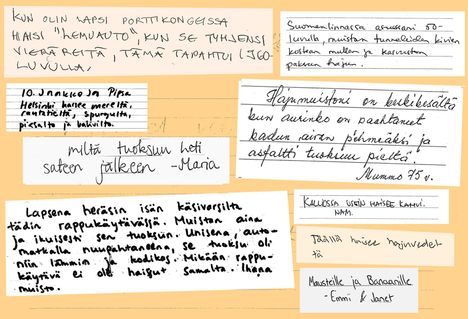 KUN OLIN LAPSI PORTTIKONGEISSA
HAISI "LEMUAUTO", KUN SE TYHJENSI
VIEMÄREITÄ, TÄMÄ TAPAHTUI 1960-
LUVULLA.
Suomenlinnassa asuessani 50-
luvulla, muistan tunneleiden kivien
kostean mullan ja kasvuston
pakuvan hajun.
10. Jaakko ja Pipsa
Helsinki haisee mereltä,
raunteiltä, spurgulta,
pissalta ja kahvilta.
Hajumuistoni on keskikesältä
kun aurinko on paahtanut
kadun aivan pehmeäksi ja
asfaltti tuoksuu pieltä.
Mummo 75 v.
miltä tuoksuu heti
sateen jälkeen -Maria
Lapsena heräsin isän käsivarsilta
tädin rappukäytävässä. Muistan aina
ja ikuisesti sen tuoksun. Unisena, auto-
matkalla nuupahtaneena, se tuoksu oli
niin lämmin ja kodikas. Mikään rappu-
käytävä ei ole haissut samalta. Ihana
muisto.
KALLIOSSA USEIN HAISEE KAHVI.
NAM.
Täällä haisee hajuvedet
tä
Mausteille ja Banaanille
- Emmi & Janet